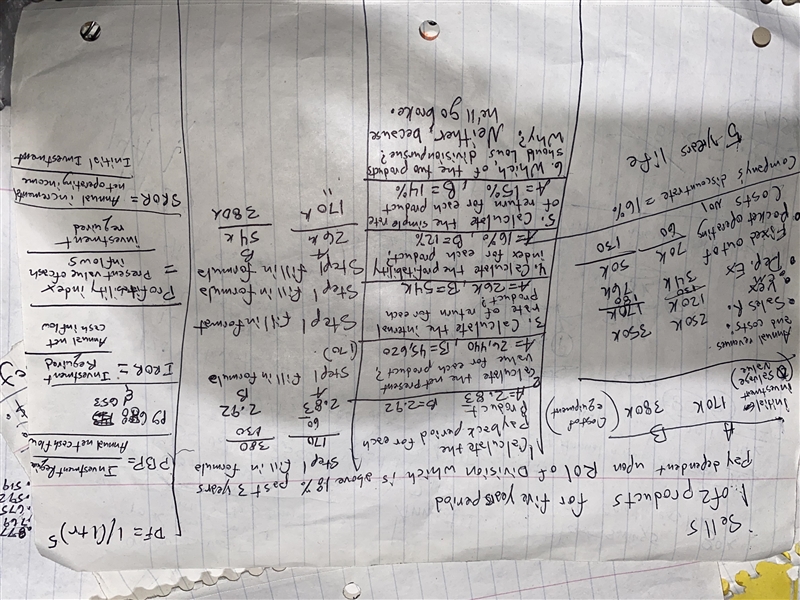 Sells
1 of 2 products for five years period
Pay dependent upon ROI of Division which is above 18% past 3 years
A B
initial investment 170k 380k (Cost of equipment)
Salvage value
Annual revenues and costs:
Sales R. 250k 350k
V Ex 120k 170k
Dep. Ex 34k 76k
Fixed out of pocket operating costs 70k 50k
60 130
Company's discount rate = 16%
5-years life
1. Calculate the payback period for each product
A=2.83 B=2.92
2. Calculate the net present value for each product?
A=26,440, B=45,620
3. Calculate the internal rate of return for each product?
A=26k B=54k
4. Calculate the profitability index for each product?
A=16%, B=12%
5. Calculate the simple rate of return for each product
A=15%, B=14%
6. Which of the two products should Lous division pursue?
Why? Neither, because
he'll go broke.
Step 1 fill in formula
170 380
60 130
2.83 2.92
A B
Step 1 fill in formula
(170)
Step 1 fill in format
Step 1 fill in formula
Step 1 fill in formula
A B
26k 54k
170k 380k
DF = 1/(1+r)^5
PBP = Investment Required
Annual net cash flow
IROR = Investment Required
Annual net cash inflow
Profitability index = Present value of cash inflows
investment required
SROR = Annual incremental net operating income
Initial Investment
.769
.675
.592
.519